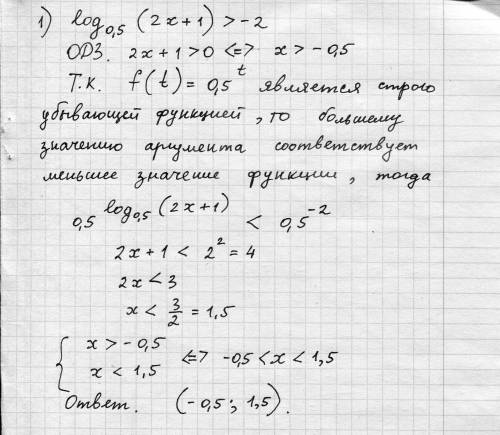 1) log₀,₅ (2x+1) > -2
ОДЗ. 2x+1>0 <=> x > -0,5
Т.к. f(t) = 0,5ᵗ является строго
убывающей функцией, то большему
значению аргумента соответствует
меньшее значение функции, тогда
0,5^log₀,₅(2x+1) < 0,5⁻²
2x+1 < 2² = 4
2x < 3
x < 3/2 = 1,5
{ x > -0,5
x < 1,5 <=> -0,5 < x < 1,5
Ответ. (-0,5; 1,5).